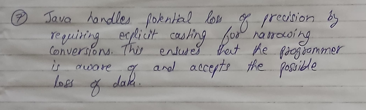 ⑦ Java handles potential loss of precision by
requiring explicit casting for narrowing
conversions. This ensures that the programmer
is aware of and accepts the possible
loss of data.